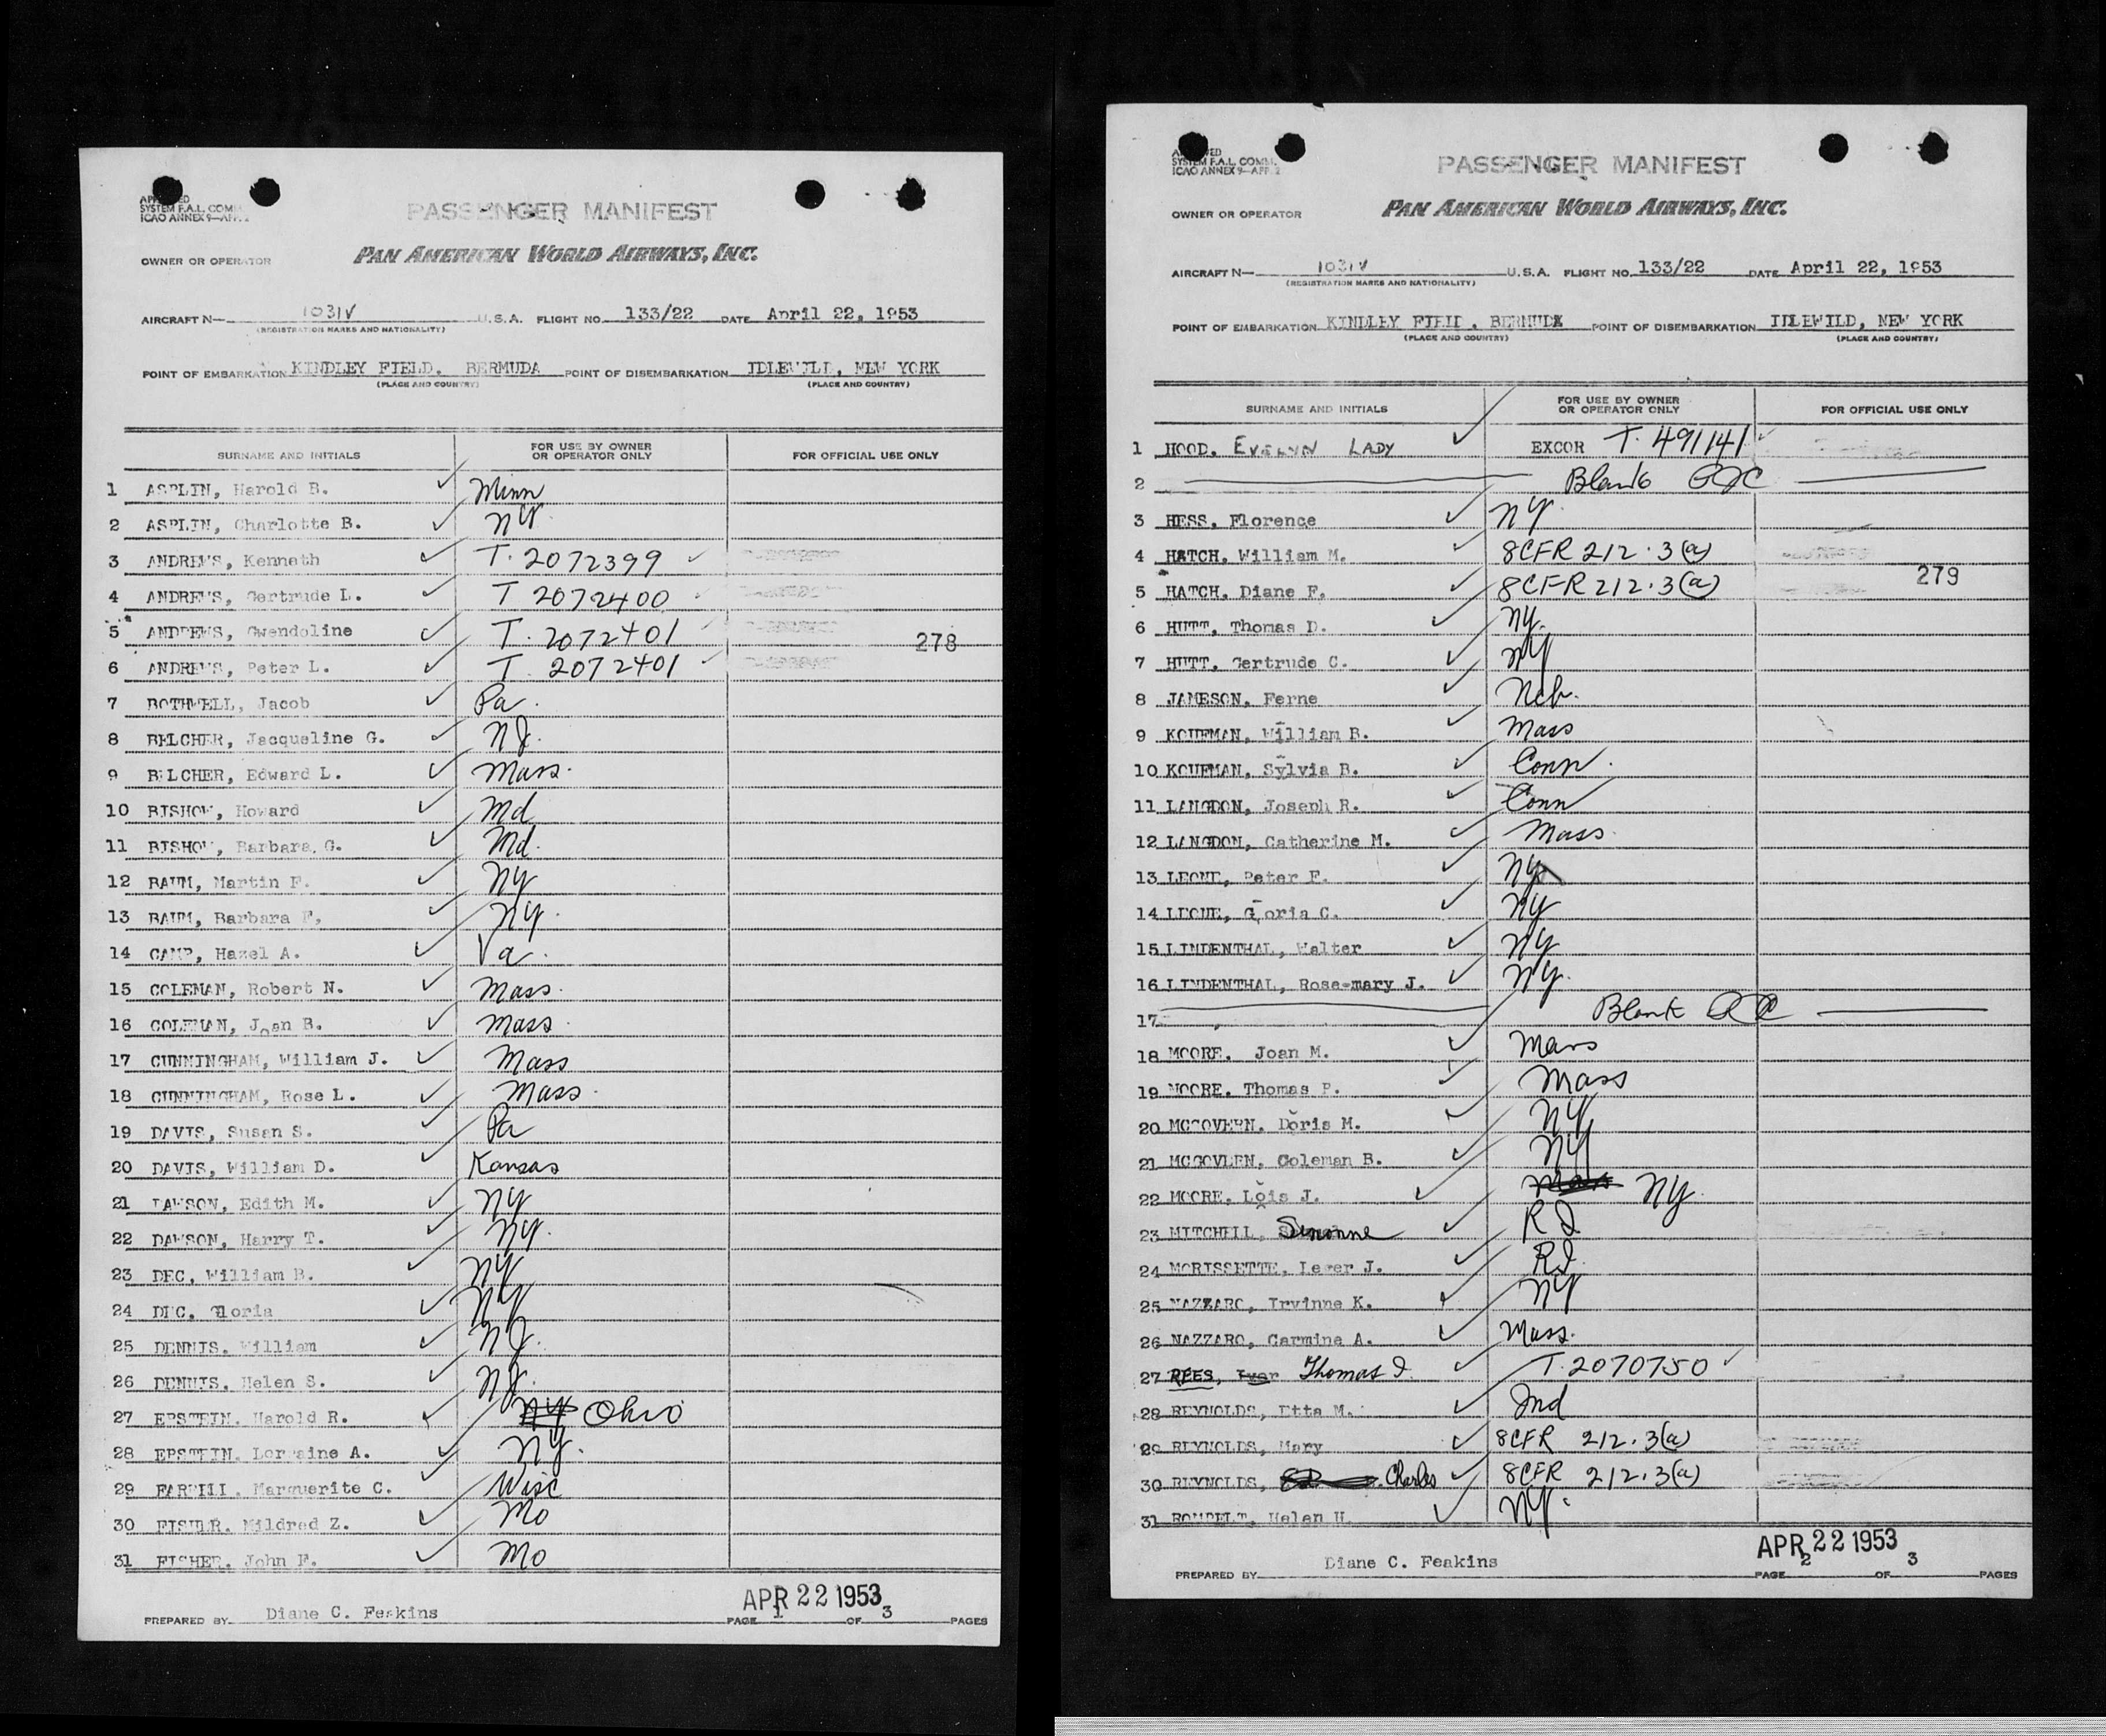 SYSTEM F.A.L. COMM.
ICAO ANNEX 9—APP. 2
PASSENGER MANIFEST
OWNER OR OPERATOR
PAN AMERICAN WORLD AIRWAYS, INC.
AIRCRAFT N— 1031V U.S.A. FLIGHT NO. 133/22 DATE April 22, 1953
(REGISTRATION MARKS AND NATIONALITY)
POINT OF EMBARKATION KINDLEY FIELD, BERMUDA POINT OF DISEMBARKATION IDLEWILD, NEW YORK
(PLACE AND COUNTRY) (PLACE AND COUNTRY)
SURNAME AND INITIALS FOR USE BY OWNER OR OPERATOR ONLY FOR OFFICIAL USE ONLY
1 ASPLIN, Harold B. Minn
2 ASPLIN, Charlotte B. NY
3 ANDREWS, Kenneth T. 2072399
4 ANDREWS, Gertrude L. T 2072400
5 ANDREWS, Gwendoline T. 2072401
278
6 ANDREWS, Peter L. T. 2072401
7 BOTHWELL, Jacob Pa.
8 BELCHER, Jacqueline G. NJ.
9 BELCHER, Edward L. Mass.
10 BISHOW, Howard Md
11 BISHOW, Barbara G. Md.
12 BAUM, Martin F. NY
13 BAUM, Barbara F, NY.
14 CAMP, Hazel A. Va.
15 COLEMAN, Robert N. Mass.
16 COLEMAN, Joan B. Mass.
17 CUNNINGHAM, William J. Mass
18 CUNNINGHAM, Rose L. Mass.
19 DAVIS, Susan S. Pa
20 DAVIS, William D. Kansas
21 DAWSON, Edith M. NY
22 DAWSON, Harry T. NY.
23 DEC, William B. NY
24 DEC, Gloria NY
25 DENNIS, William NJ.
26 DENNIS, Helen S. NJ.
27 EPSTEIN, Harold R. NY Ohio
28 EPSTEIN, Lorraine A. NY.
29 Marguerite C. Wisc
30 FISHER, Mildred Z. Mo
31 FISHER, John F. Mo
APR 22 1953
PREPARED BY Diane C. Feakins PAGE 1 OF 3 PAGES
SYSTEM F.A.L. COMM.
ICAO ANNEX 9—APP. 2
PASSENGER MANIFEST
OWNER OR OPERATOR
PAN AMERICAN WORLD AIRWAYS, INC.
AIRCRAFT N— 1031V U.S.A. FLIGHT NO. 133/22 DATE April 22, 1953
(REGISTRATION MARKS AND NATIONALITY)
POINT OF EMBARKATION KINDLEY FIELD, BERMUDA POINT OF DISEMBARKATION IDLEWILD, NEW YORK
(PLACE AND COUNTRY) (PLACE AND COUNTRY)
SURNAME AND INITIALS FOR USE BY OWNER OR OPERATOR ONLY FOR OFFICIAL USE ONLY
1 HOOD, EVELYN LADY EXCOR T. 491141
2 Blank
3 HESS, Florence NY.
4 HATCH, William M. 8CFR 212.3(a)
279
5 HATCH, Diane F. 8CFR 212.3(a)
6 HUTT, Thomas D. NY.
7 HUTT, Gertrude C. NY
8 JAMESON, Ferne Neb.
9 KOUFMAN, William B. Mass
10 KOUFMAN, Sylvia B. Conn.
11 LANGDON, Joseph R. Conn
12 LANGDON, Catherine M. Mass.
13 LEONE, Peter F. NY
14 LEONE, Gloria C. NY
15 LINDENTHAL, Walter NY
16 LINDENTHAL, Rose-mary J. NY.
17 Blank
18 MOORE, Joan M. Mass
19 MOORE, Thomas P. Mass
20 MCGOVERN, Doris M. NY
21 MCGOVERN, Coleman B. NY
22 MOORE, Lois J. Mass NY.
23 MITCHELL, Simonne RI
24 MORISSETTE, Leger J. RI.
25 NAZZARO, Irvinne K. NY
26 NAZZARO, Carmine A. Mass.
27 REES, Ivor Thomas I. T. 2070750
28 REYNOLDS, Etta M. Ind
29 REYNOLDS, Mary 8CFR 212.3(a)
30 REYNOLDS, Charles 8CFR 212.3(a)
31 Helen H. NY.
APR 22 1953
PREPARED BY Diane C. Feakins PAGE 2 OF 3 PAGES